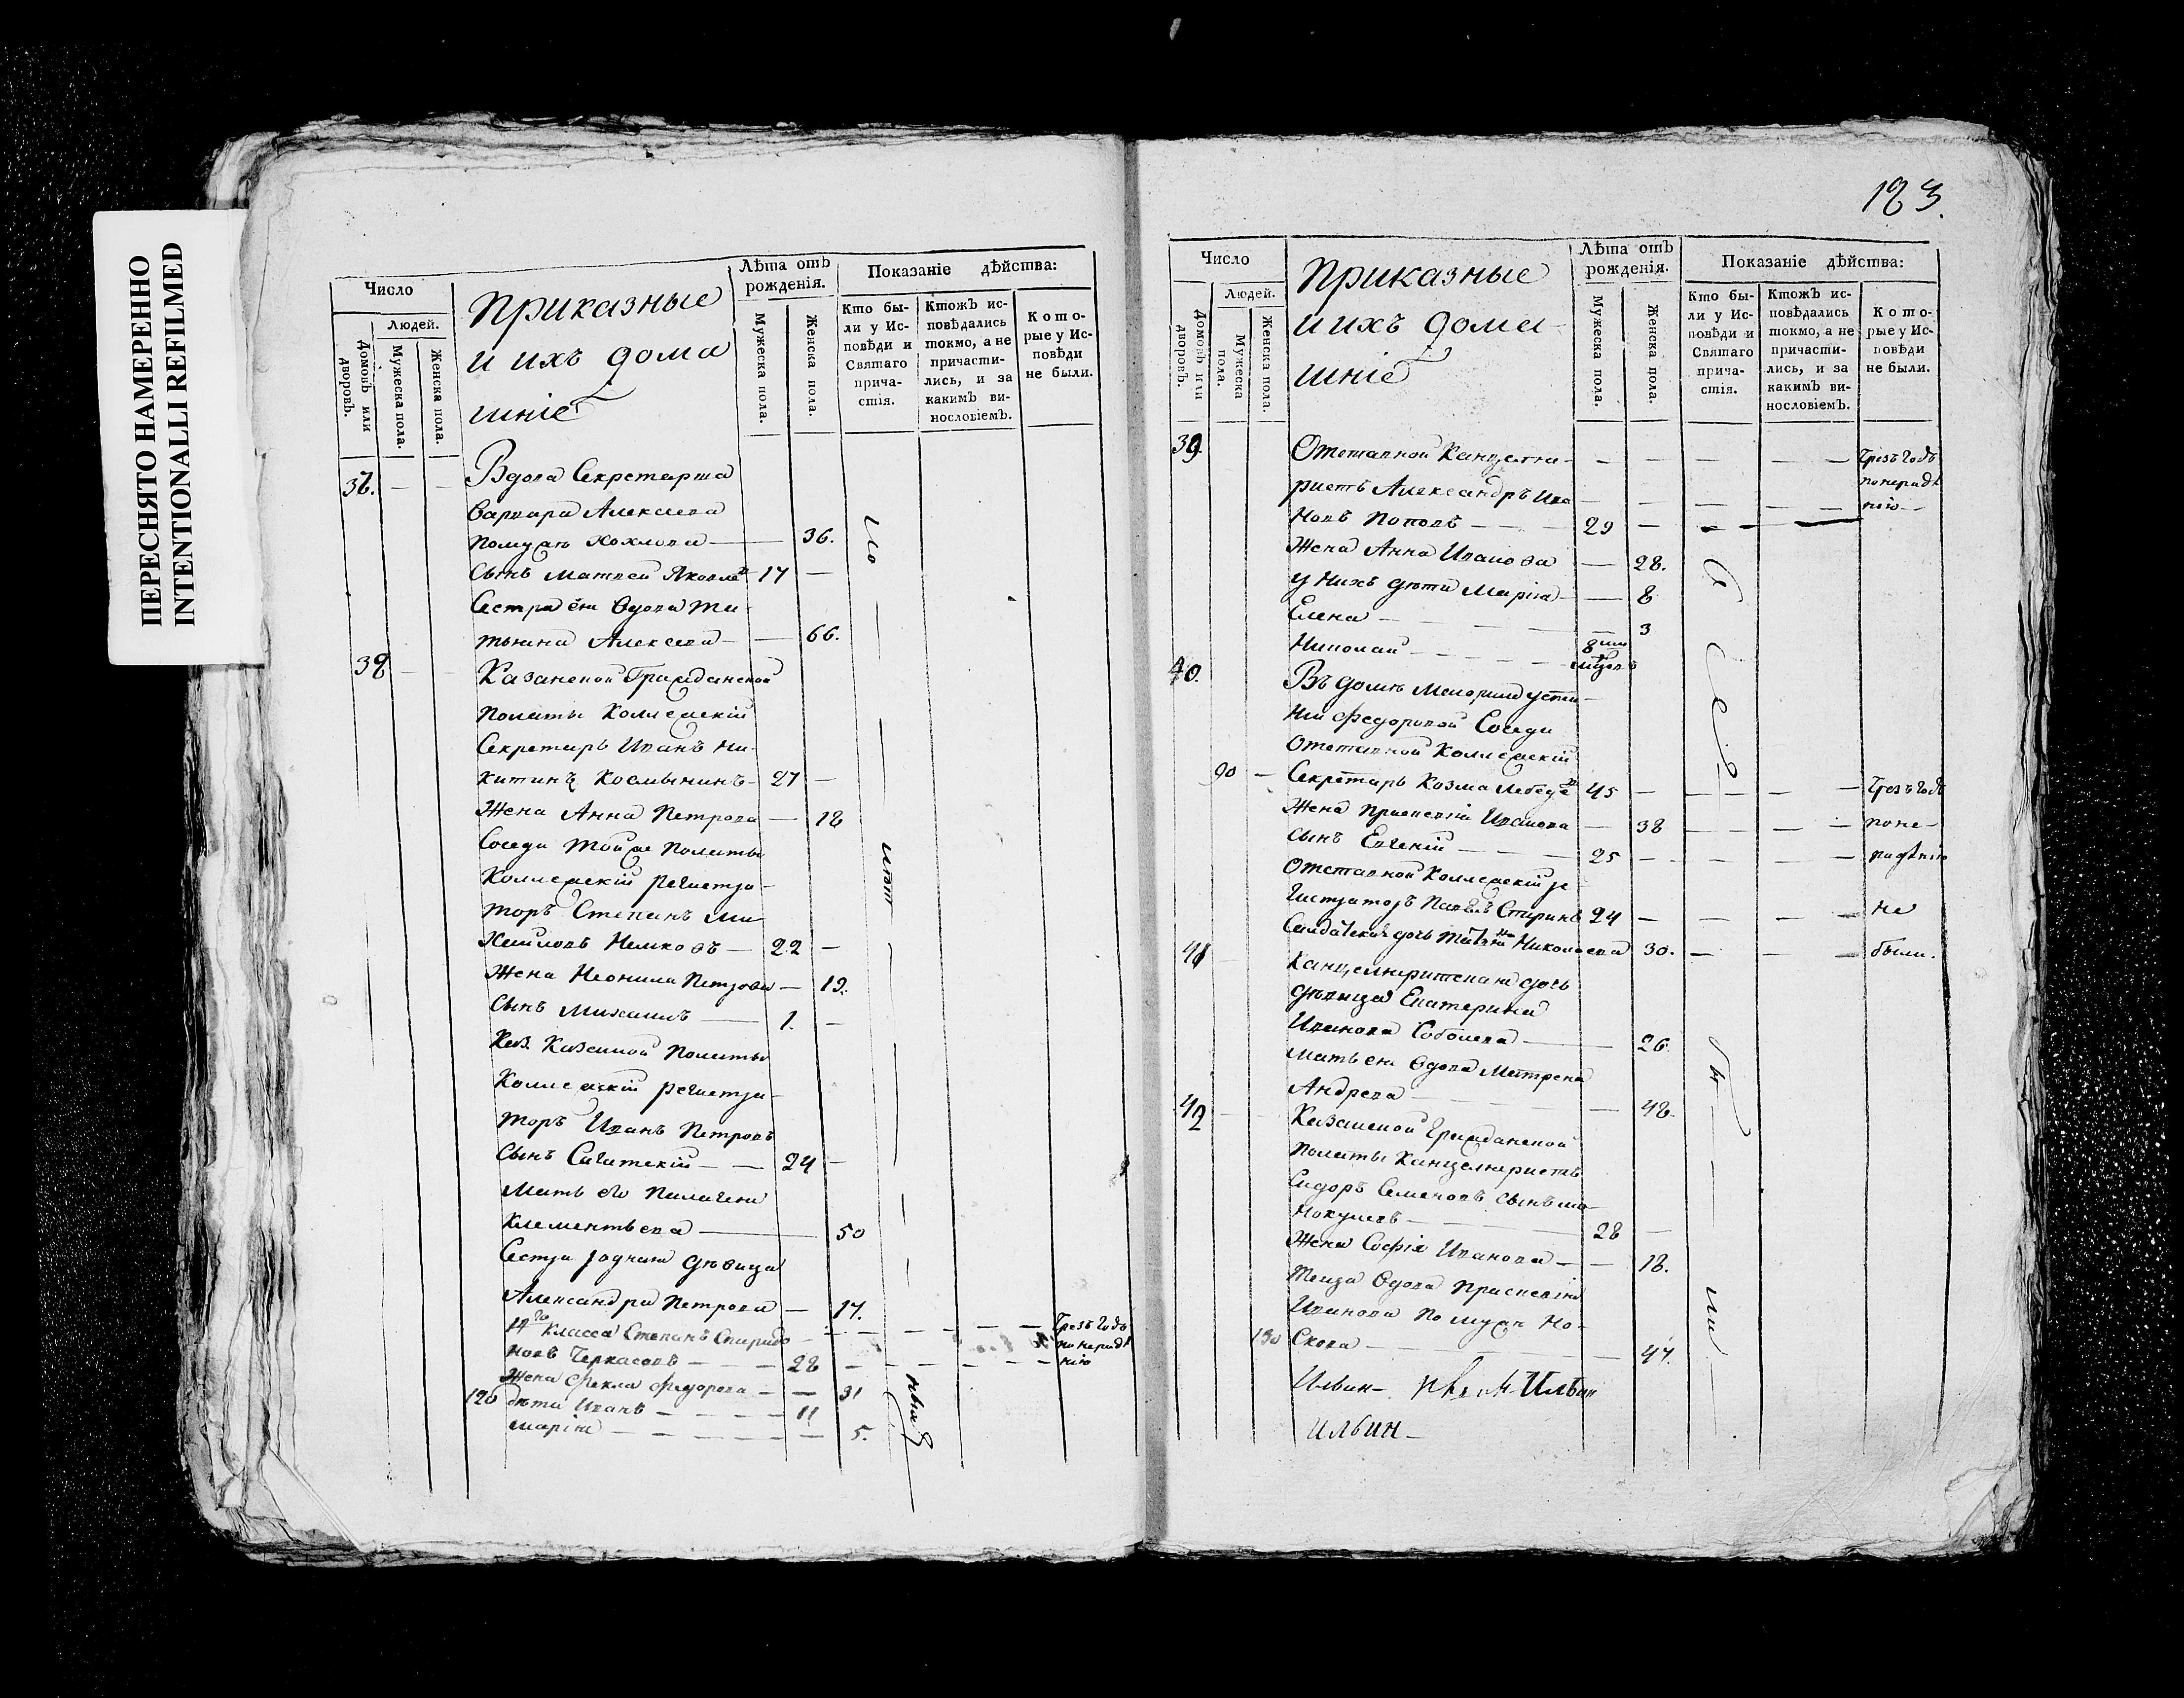 ПЕРЕСНЯТО НАМЕРЕННО
INTENTIONALLI REFILMED
Число
Людей.
Домовъ или дворовъ.
Мужеска пола.
Женска пола.
Приказные
и ихъ дома
шніе
Лѣта отъ
рожденія.
Мужеска пола.
Женска пола.
Показаніе дѣйства:
Кто бы-
ли у Ис-
повѣди и
Святаго
прича-
стія.
Ктожъ ис-
повѣдались
токмо, а не
причасти-
лись, и за
какимъ ви-
нословіемъ.
Кото-
рые у Ис-
повѣди
не были.
Вдова Секретарша
Варвара Алексеева
36.
Сынъ Матвей Яковле 17
Сестра ея Вдова Та-
тьяна Алексеева 66.
38 Казанской Гражданской
Полаты Колежскій
Секретарь Иванъ Ни-
китинъ 27
Жена Анна Петрова 18
Соседи той же Полаты
Коллежскій Регистра-
торъ Степанъ Ми-
хайловъ 22
Жена Неонила Петрова 19.
Сынъ Михаилъ 1.
Каз. Казенной Полаты
Колежскій Регистра-
торъ Иванъ Петровъ
Сынъ 24
Мать его Палагея
Клементьева 50
Сестра родная девица
Александра Петрова 17.
14го класса Степанъ Спиридо
новъ Черкасовъ 28
Чрезъ годъ
по нерадѣ
нію
Жена Фекла Федорова 31
120 дети Иванъ 11
Марія 5.
123.
Число
Людей.
Домовъ или дворовъ.
Мужеска пола.
Женска пола.
Приказные
и ихъ дома-
шніе
Лѣта отъ
рожденія.
Мужеска пола.
Женска пола.
Показаніе дѣйства:
Кто бы-
ли у Ис-
повѣди и
Святаго
прича-
стія.
Ктожъ ис-
повѣдались
токмо, а не
причасти-
лись, и за
какимъ ви-
нословіемъ.
Кото-
рые у Ис-
повѣди
не были.
39. Отставной Канцеля-
ристъ Александръ Ива
новъ Поповъ 29
Чрезъ годъ
по нерадѣ
нію
Жена Анна Иванова 28.
у нихъ дети Марія 8
Елена 3
Николай
40. Въ доме
Федоровой Соседи
Отставной Колежскій
90 Секретарь Козма Лебеде 45 Чрезъ годъ
Жена Прасковія Иванова 38 по не-
Сынъ Евгеній 25 радѣнію
Отставной Коллежскій ре
гистраторъ 24 не
дочь Николаева 30. были.
41
дочь
девица Екатерина
Иванова Соболева 26.
Мать ея Вдова Матрена
Андрева 48.
42 Казанской Гражданской
Полаты Канцеляристъ
Сидоръ Семеновъ Сынъ
28
Жена Софія Иванова 18.
Теща Вдова Прасковія
Иванова По муже Но-
130 скова 47.
Ильин Ильин
Ильин